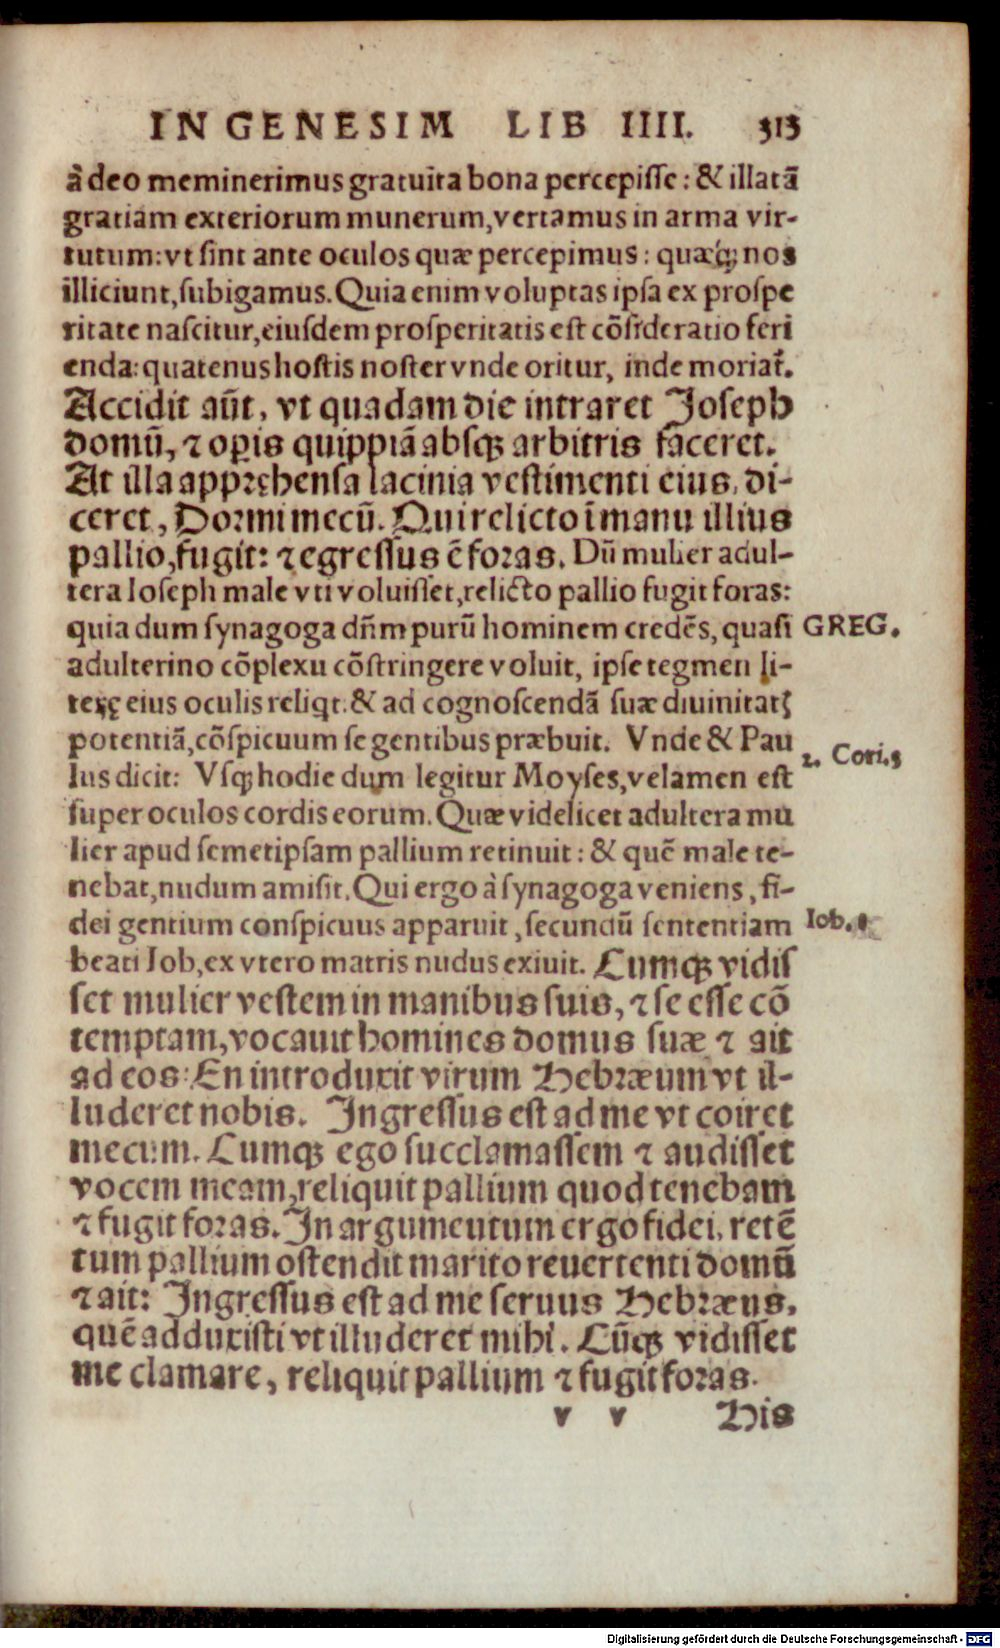 IN GENESIM LIB IIII. 313
à deo meminerimus gratuita bona percepisse: & illatā
gratiam exteriorum munerum, vertamus in arma vir-
tutum: vt sint ante oculos quæ percepimus: quæq; nos
illiciunt, subigamus. Quia enim voluptas ipsa ex prospe
ritate nascitur, eiusdem prosperitatis est cōsideratio feri
enda: quatenus hostis noster vnde oritur, inde moriat̃.
Accidit aūt, vt quadam die intraret Joseph
domū, ⁊ opis quippiā absqꝫ arbitris faceret.
At illa apprehensa lacinia vestimenti eius, di-
ceret, Dormi mecū. Qui relicto ī manu illius
pallio, fugit: ⁊ egressus ē foras. Dū mulier adul-
tera Ioseph male vti voluisset, relicto pallio fugit foras:
quia dum synagoga dñm purū hominem credēs, quasi GREG.
adulterino cōplexu cōstringere voluit, ipse tegmen li-
terę eius oculis reliqt. & ad cognoscendā suæ diuinitatꝭ
potentiā, cōspicuum se gentibus præbuit. Vnde & Pau
lus dicit: Vsqꝫ hodie dum legitur Moyses, velamen est 2. Cori.3
super oculos cordis eorum. Quæ videlicet adultera mu
lier apud semetipsam pallium retinuit: & quē male te-
nebat, nudum amisit. Qui ergo à synagoga veniens, fi-
dei gentium conspicuus apparuit, secundū sententiam Iob.1
beati Iob, ex vtero matris nudus exiuit. Cumqꝫ vidis
set mulier vestem in manibus suis, ⁊ se esse cō
temptam, vocauit homines domus suæ ⁊ ait
ad eos: En introduxit virum Hebræum vt il-
luderet nobis. Ingressus est ad me vt coiret
mecum. Cumqꝫ ego succlamassem ⁊ audisset
vocem meam, reliquit pallium quod tenebam
⁊ fugit foras. In argumentum ergo fidei, retē
tum pallium ostendit marito reuertenti domū
⁊ ait: Ingressus est ad me seruus Hebræus,
quē adduxisti vt illuderet mihi. Cūqꝫ vidisset
me clamare, reliquit pallium ⁊ fugit foras.
v v His
Digitalisierung gefördert durch die Deutsche Forschungsgemeinschaft - DFG